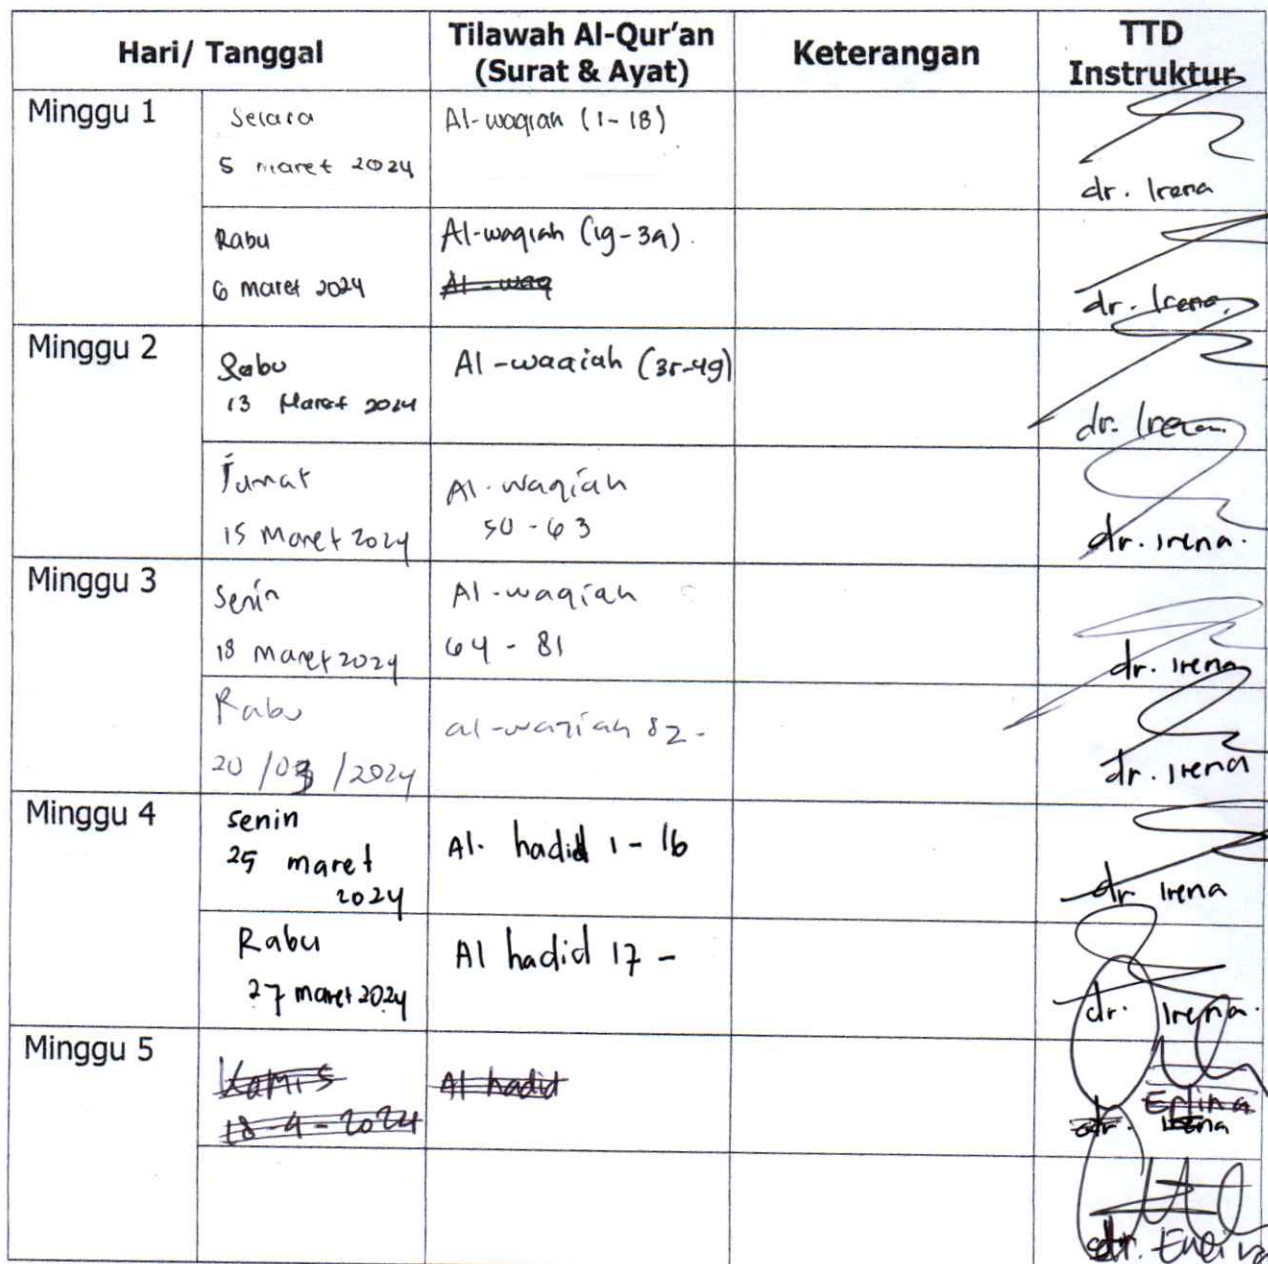 Hari/ Tanggal
Tilawah Al-Qur'an
(Surat & Ayat)
Keterangan
TTD
Instruktur
Minggu 1
Selasa
5 maret 2024
Al-waqiah (1-18)
dr. Irena
Rabu
6 maret 2024
Al-waqiah (19-34).
Al-waq
dr. Irena
Minggu 2
Rabu
13 Maret 2024
Al-waqiah (35-49)
dr. Irena
Jumat
15 Maret 2024
Al-waqiah
50-63
dr. Irena.
Minggu 3
Senin
18 maret 2024
Al-waqiah
64 - 81
dr. Irena
Rabu
20/03/2024
al-waqiah 82-
dr. Irena
Minggu 4
senin
25 maret
2024
Al-hadid 1-16
dr Irena
Rabu
27 maret 2024
Al hadid 17 -
dr. Irena.
Minggu 5
Kamis
18-4-2024
Al hadid
Erlina
dr. Irena
dr.